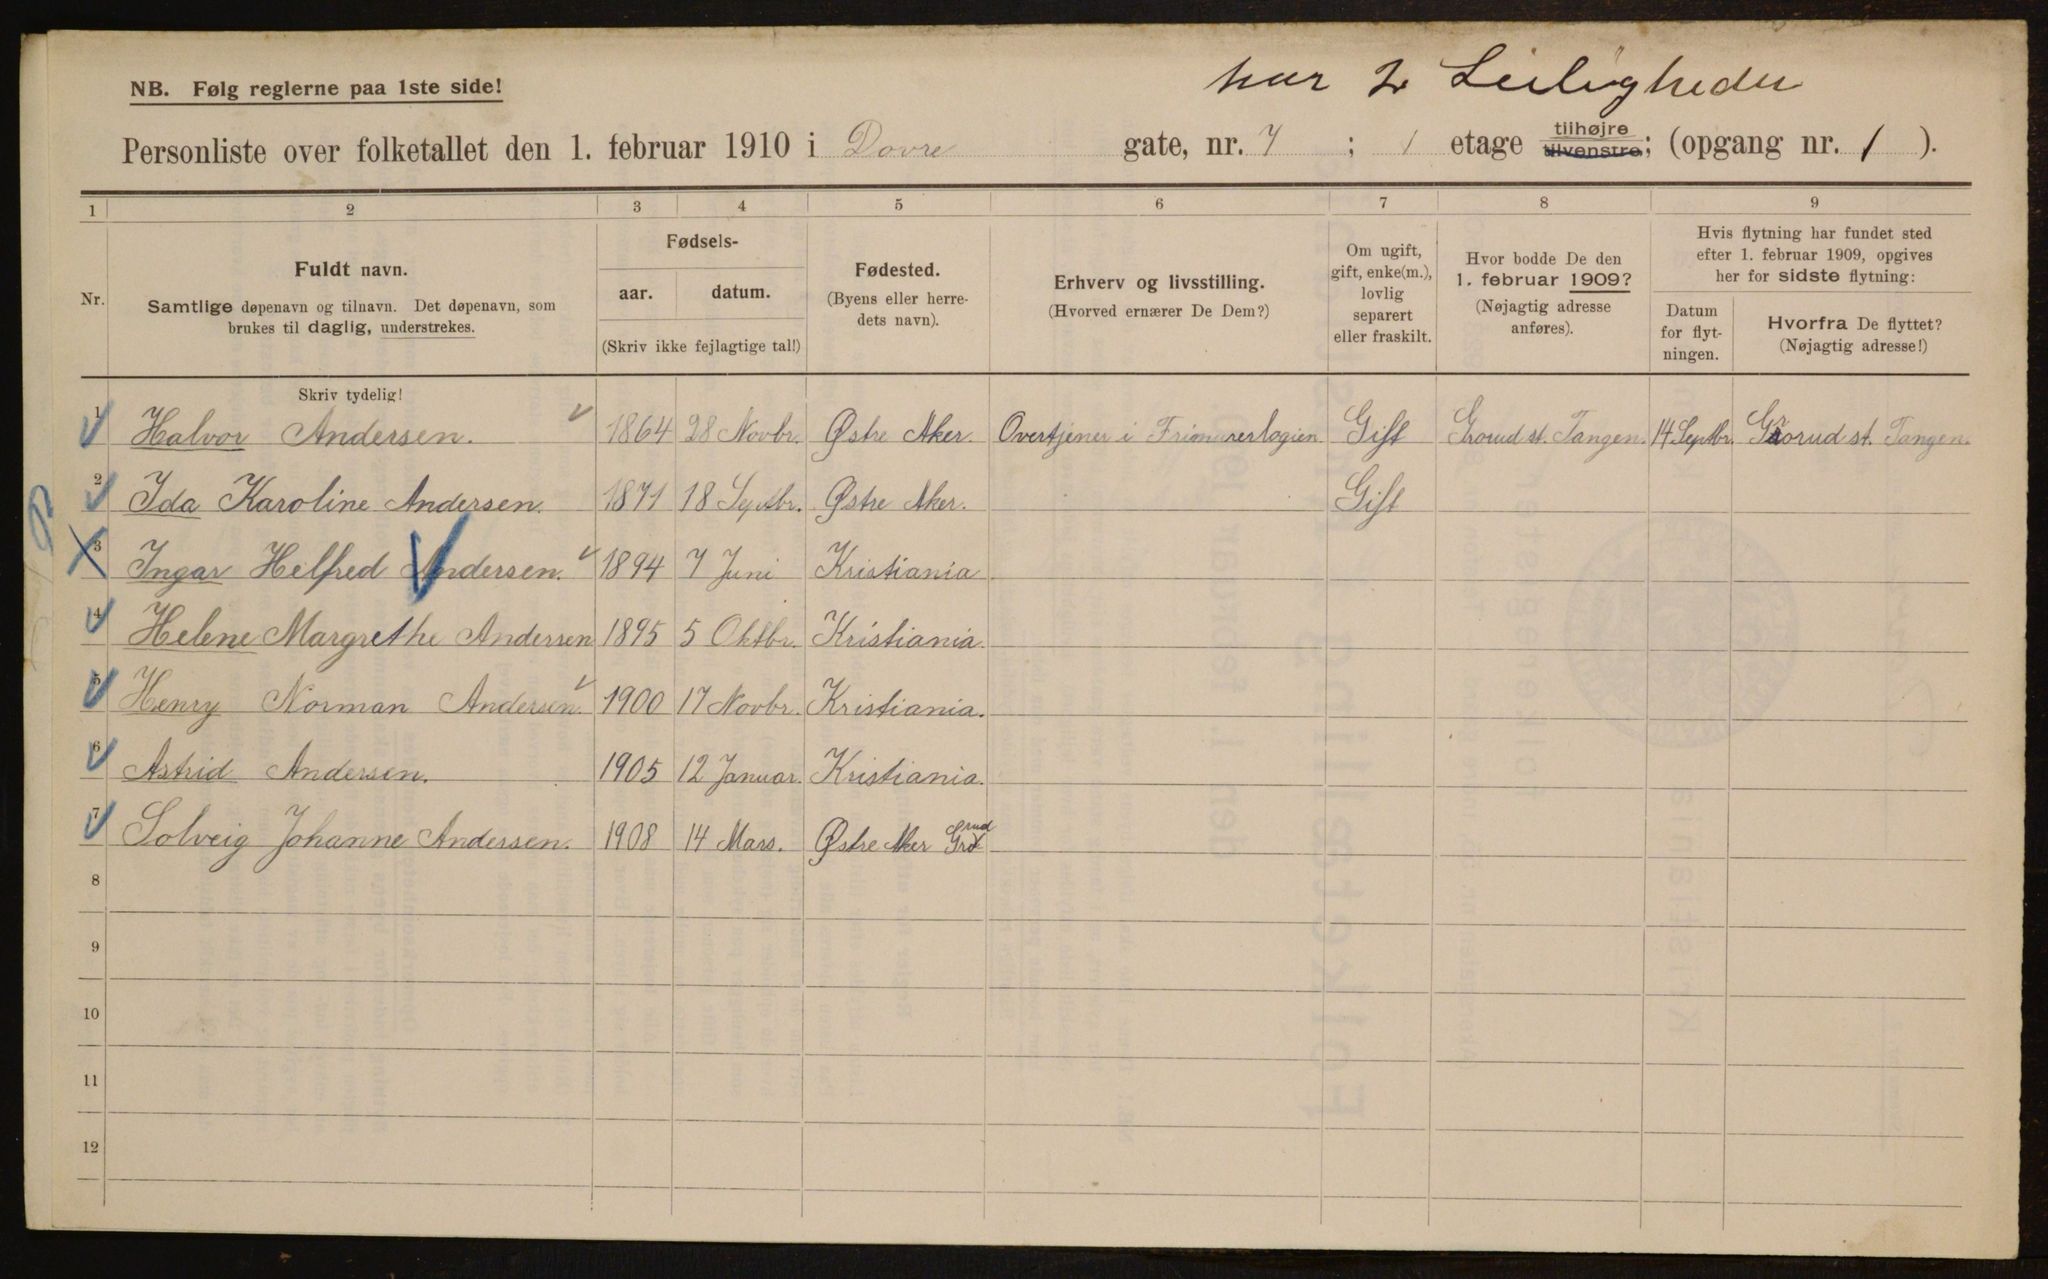 har 2 Leiligheder
NB. Følg reglerne paa 1ste side!
Personliste over folketallet den 1. februar 1910 i Dovre gate, nr. 7 ; 1 etage tilhøjre tilvenstre; (opgang nr. 1 ).
1 2 3 4 5 6 7 8 9
Nr.
Fuldt navn.
Samtlige døpenavn og tilnavn. Det døpenavn, som
brukes til daglig, understrekes.
Fødsels-
aar. datum.
(Skriv ikke fejlagtige tal!)
Fødested.
(Byens eller herre-
dets navn).
Erhverv og livsstilling.
(Hvorved ernærer De Dem?)
Om ugift,
gift, enke(m.),
lovlig
separert
eller fraskilt.
Hvor bodde De den
1. februar 1909?
(Nøjagtig adresse
anføres).
Hvis flytning har fundet sted
efter 1. februar 1909, opgives
her for sidste flytning:
Datum
for flyt-
ningen.
Hvorfra De flyttet?
(Nøjagtig adresse!)
Skriv tydelig!
1 Halvor Andersen. 1864 28 Novbr. Østre Aker. Overtjener i Frimurerlogien Gift Grorud st. Tangen. 14 Septbr. Grorud st. Tangen.
2 Ida Karoline Andersen. 1871 18 Septbr. Østre Aker. Gift
3 Ingar Helfred Andersen. 1894 7 Juni Kristiania
4 Helene Margrethe Andersen 1895 5 Oktbr. Kristiania.
5 Henry Norman Andersen. 1900 17 Novbr. Kristiania.
6 Astrid Andersen. 1905 12 Januar. Kristiania.
7 Solveig Johanne Andersen. 1908 14 Mars. Østre Aker Grorud
8
9
10
11
12